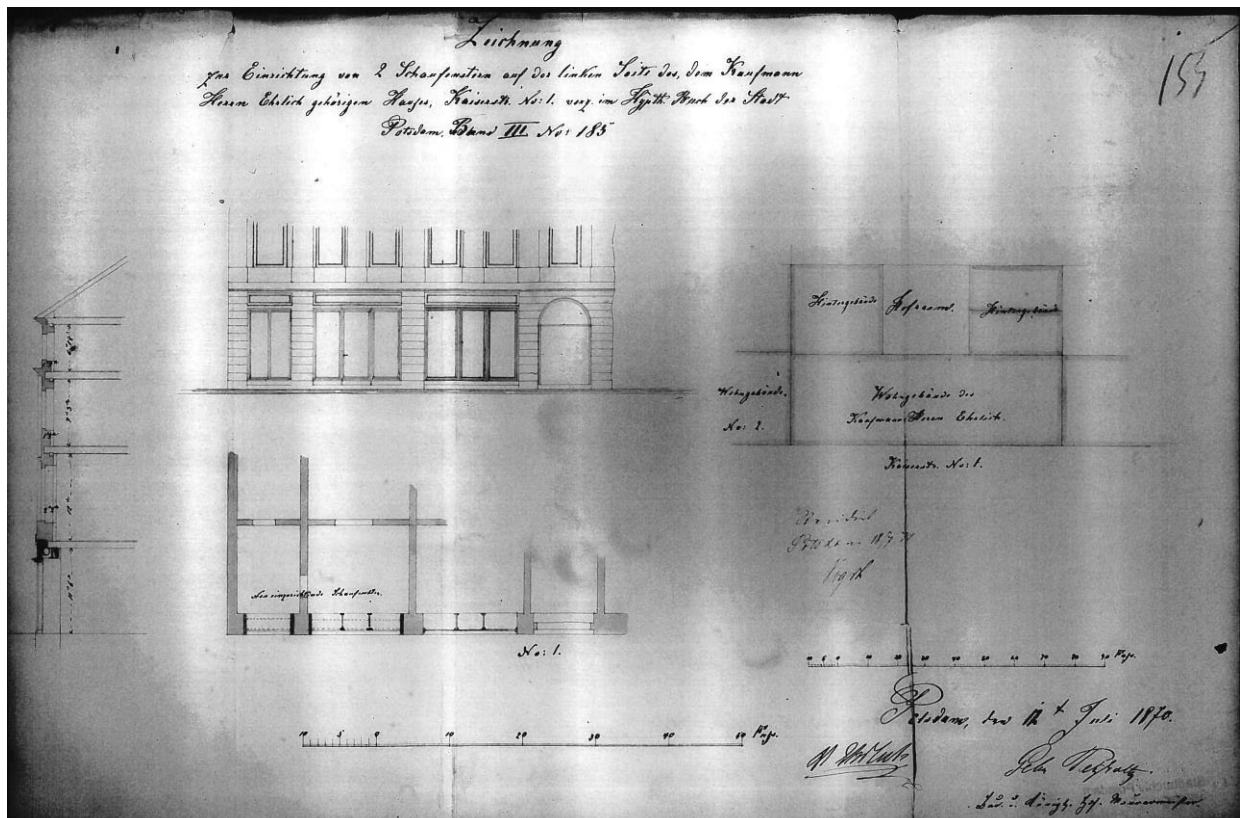 Zeichnung
zur Einrichtung von 2 Schaufenstern auf der linken Seite des, dem Kaufmann
Herrn Ehrlich gehörigen Hauses, Kaiserstr. No: 1. verz. im Hypth. Buch der Stadt
Potsdam, Band III No: 185
155
Hintergebäude
Hofraum.
Hintergebäude
Wohngebäude.
No: 2.
Wohngebäude des
Kaufmann Herrn Ehrlich.
Kaiserstr. No: 1.
Revidirt
Potsdam
Neu einzurichtende Schaufenster.
No: 1.
10 5 0 10 20 30 40 50 60 70 Fuß.
10 5 0 10 20 30 40 50 Fuß.
Potsdam, den 12t Juli 1870.
Gebr.
Hof. Maurermeister.